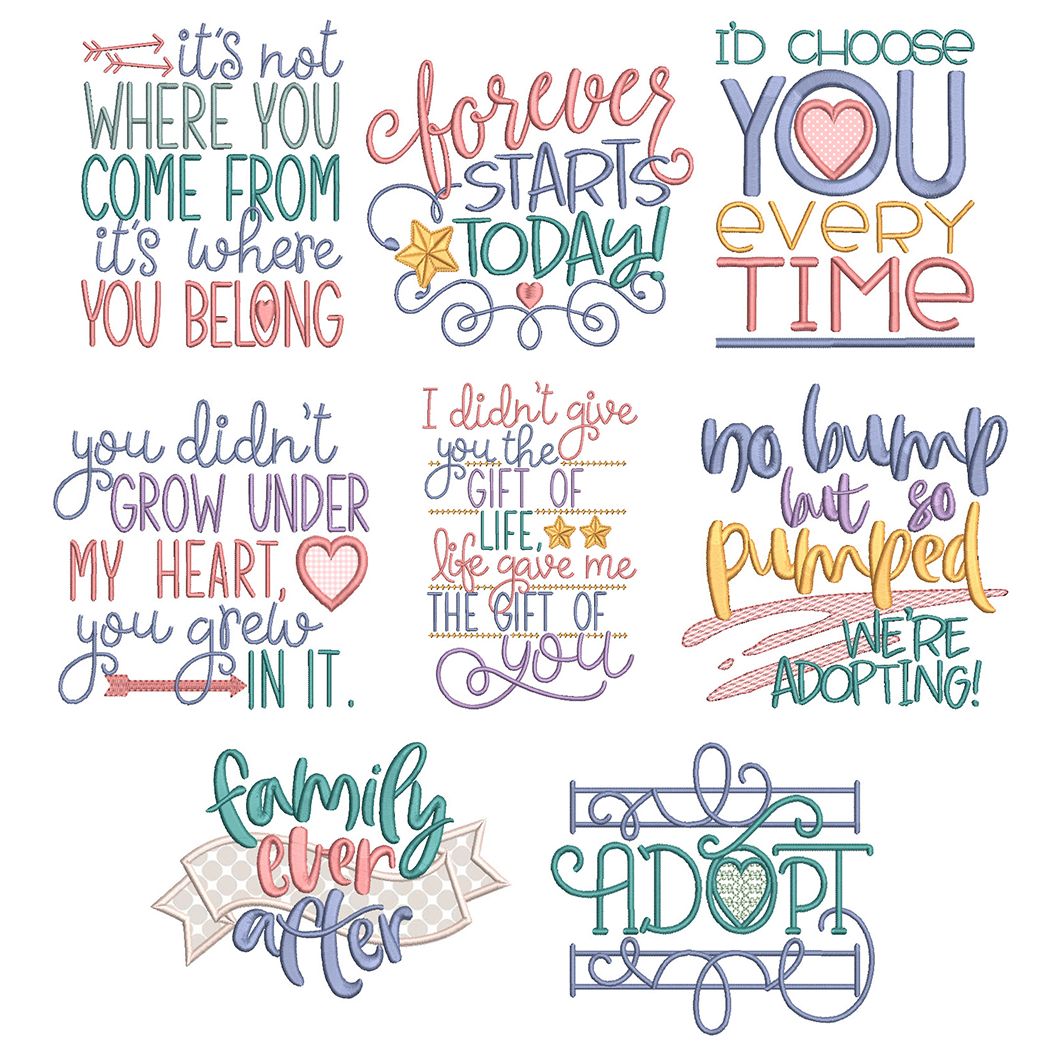 it's not
WHERE YOU
COME FROM
it's where
YOU BELONG
forever
STARTS
TODAY!
I'D CHOOSE
YOU
EVERY
TIME
you didn't
GROW UNDER
MY HEART,
you grew
IN IT.
I didn't give
you the
GIFT OF
LIFE,
life gave me
THE GIFT OF
you
no bump
but so
pumped
WE'RE
ADOPTING!
family
ever
after
ADOPT